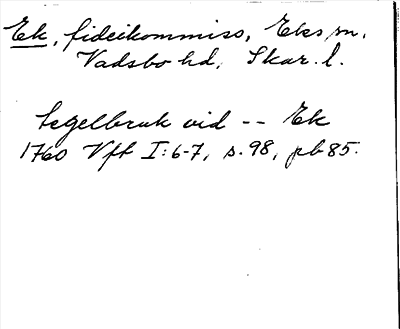 Ek, fideikommiss, Eks sn.
Vadsbo hd, Skar. l.
Tegelbruk vid -- Ek
1760 Vft I:6-7, s. 98, pb 85.